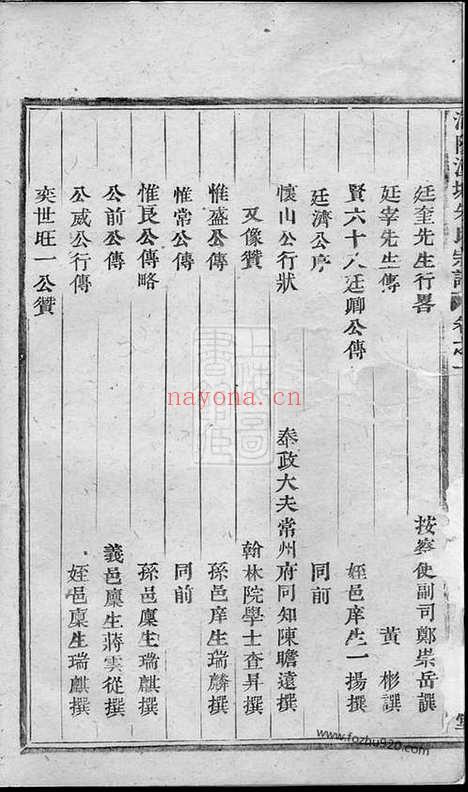 廷奎先生行畧 按察使副司鄭崇岳譔
廷宰先生傳 黃彬譔
賢六十八廷卿公傳 姪邑庠生一揚撰
廷濟公序 同前
懷山公行狀 奉政大夫常州府同知陳瞻遠撰
又像贊 翰林院學士查昇撰
惟盛公傳 孫邑庠生瑞麟撰
惟常公傳 同前
惟良公傳略 孫邑廩生瑞麒撰
公前公傳 義邑廩生蔣雲從撰
公威公行傳 姪邑廩生瑞麒撰
奕世旺一公贊
nayona.cn
www.fozhu920.com